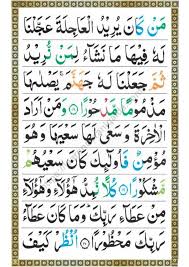 مَنْ كَانَ يُرِيْدُ الْعَاجِلَةَ عَجَّلْنَا
لَهٗ فِيْهَا مَا نَشَآءُ لِمَنْ نُّرِيْدُ
ثُمَّ جَعَلْنَا لَهٗ جَهَنَّمَ يَصْلٰىهَا
مَذْمُوْمًا مَّدْحُوْرًا ۝ وَمَنْ اَرَادَ
الْاٰخِرَةَ وَسَعٰى لَهَا سَعْيَهَا وَهُوَ
مُؤْمِنٌ فَاُولٰٓئِكَ كَانَ سَعْيُهُمْ
مَّشْكُوْرًا ۝ كُلًّا نُّمِدُّ هٰٓؤُلَآءِ وَهٰٓؤُلَآءِ
مِنْ عَطَآءِ رَبِّكَ وَمَا كَانَ عَطَآءُ
رَبِّكَ مَحْظُوْرًا ۝ اُنْظُرْ كَيْفَ